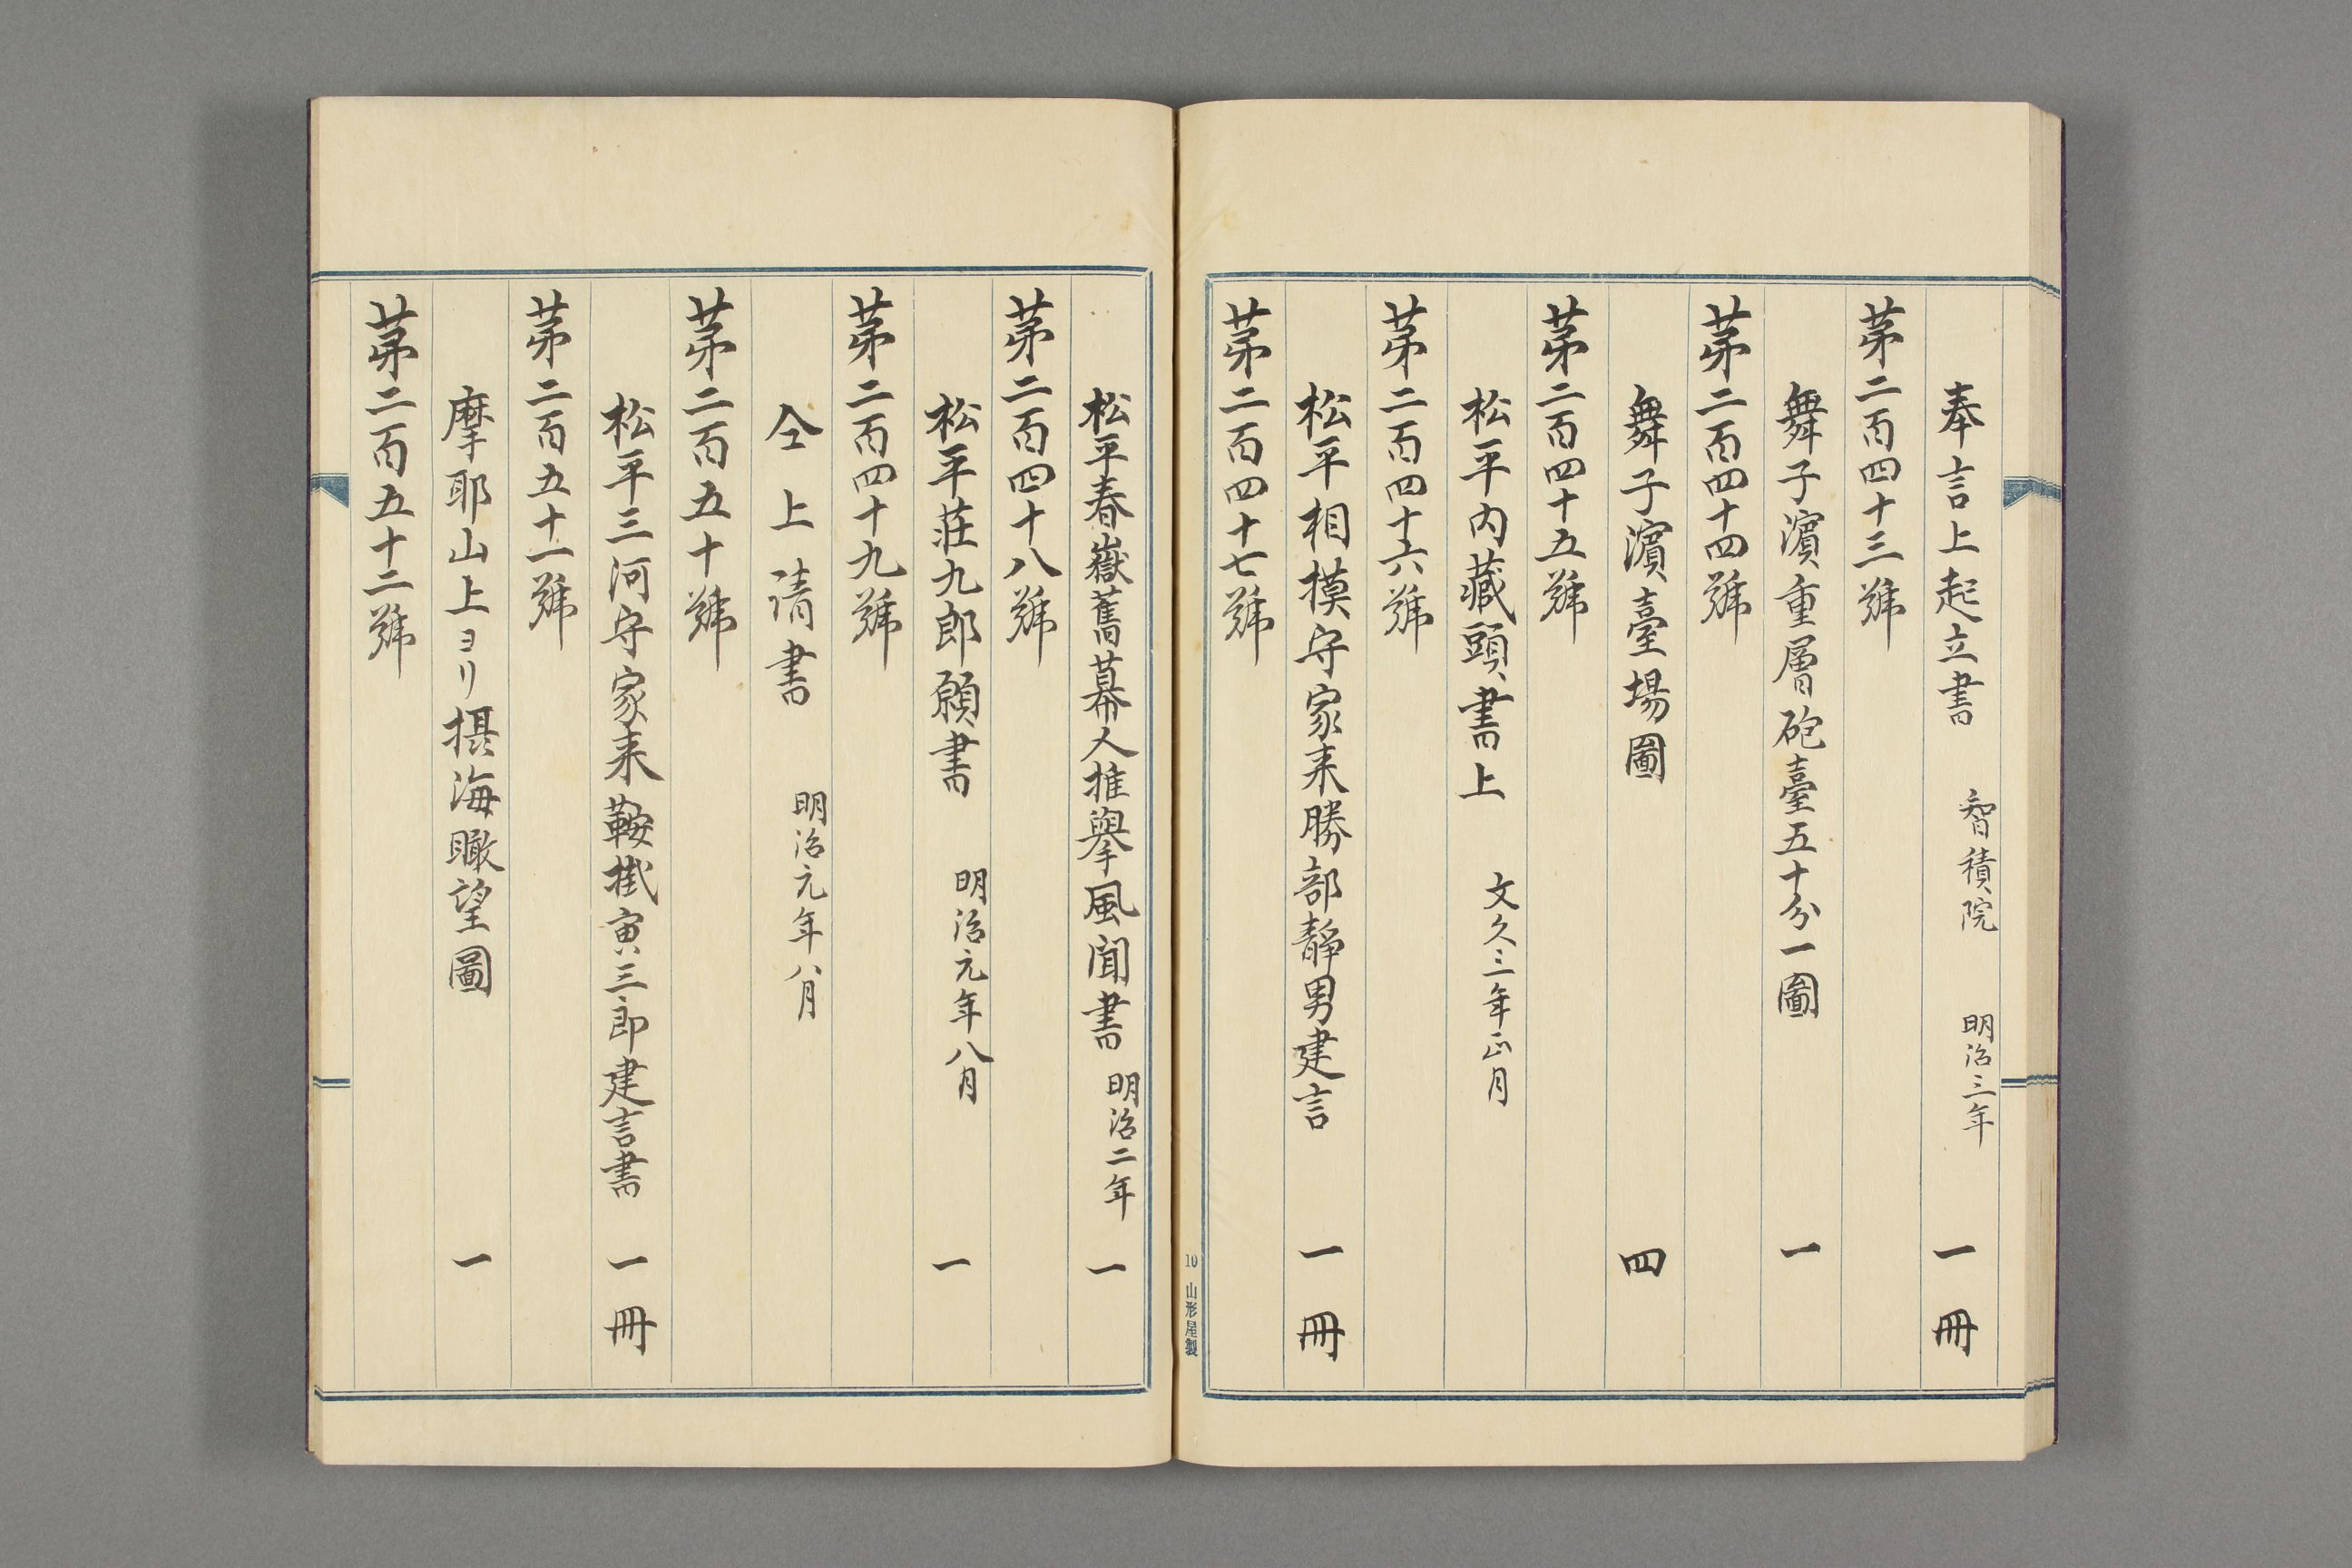 奉言上起立書 智積院 明治三年 一冊
第二百四十三號
舞子濱重層砲臺五十分一圖 一
第二百四十四號
舞子濱臺場圖 四
第二百四十五號
松平内藏頭書上 文久三年正月
第二百四十六號
松平相摸守家来勝部靜男建言 一冊
第二百四十七號
10 山形屋製
松平春嶽舊幕人推擧風聞書 明治二年 一
第二百四十八號
松平荘九郎願書 明治元年八月 一
第二百四十九號
仝上請書 明治元年八月
第二百五十號
松平三河守家来鞍掛寅三郎建言書 一冊
第二百五十一號
摩耶山上ヨリ摂海瞰望圖 一
第二百五十二號